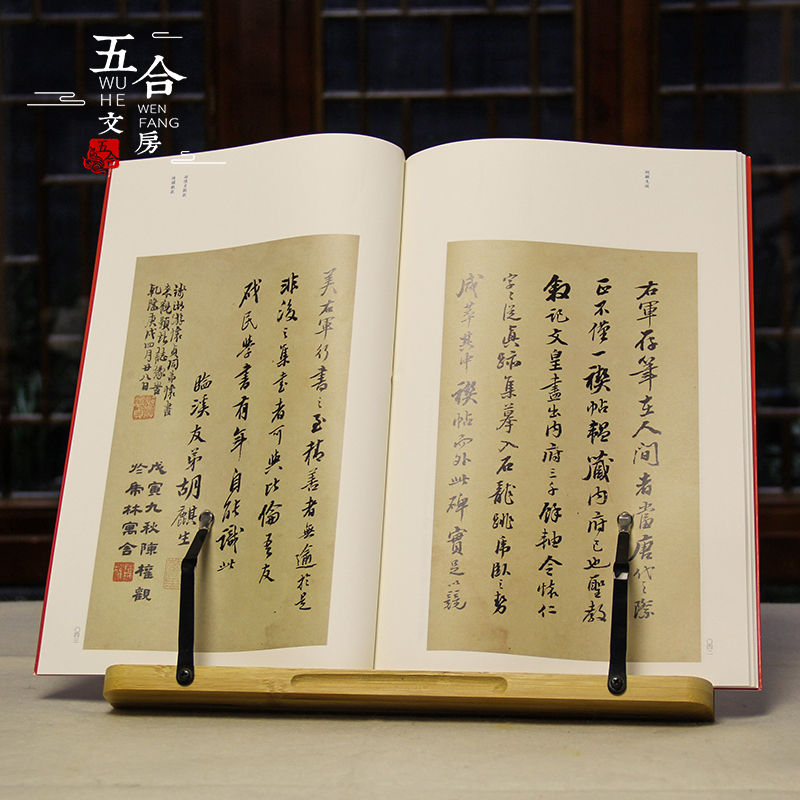 五合文房
WU HE
WEN FANG
五合
右軍存筆在人間者當唐代之際
正不僅一禊帖韞藏内府已也聖教
敘記文皇盡出内府三千餘軸令懷仁
字之從真跡集摹入石龍跳虎臥之勢
咸萃其中禊帖而外此碑實足以競
〇四二
美右軍行書之至精善者無逾於是
非後之集書者可與比倫吾友
砥民學書有年自能識此
臨溪友弟胡麒生
乾隆庚戌四月廿八日
戊寅九秋陳觀
於虎林寓舍
〇四三